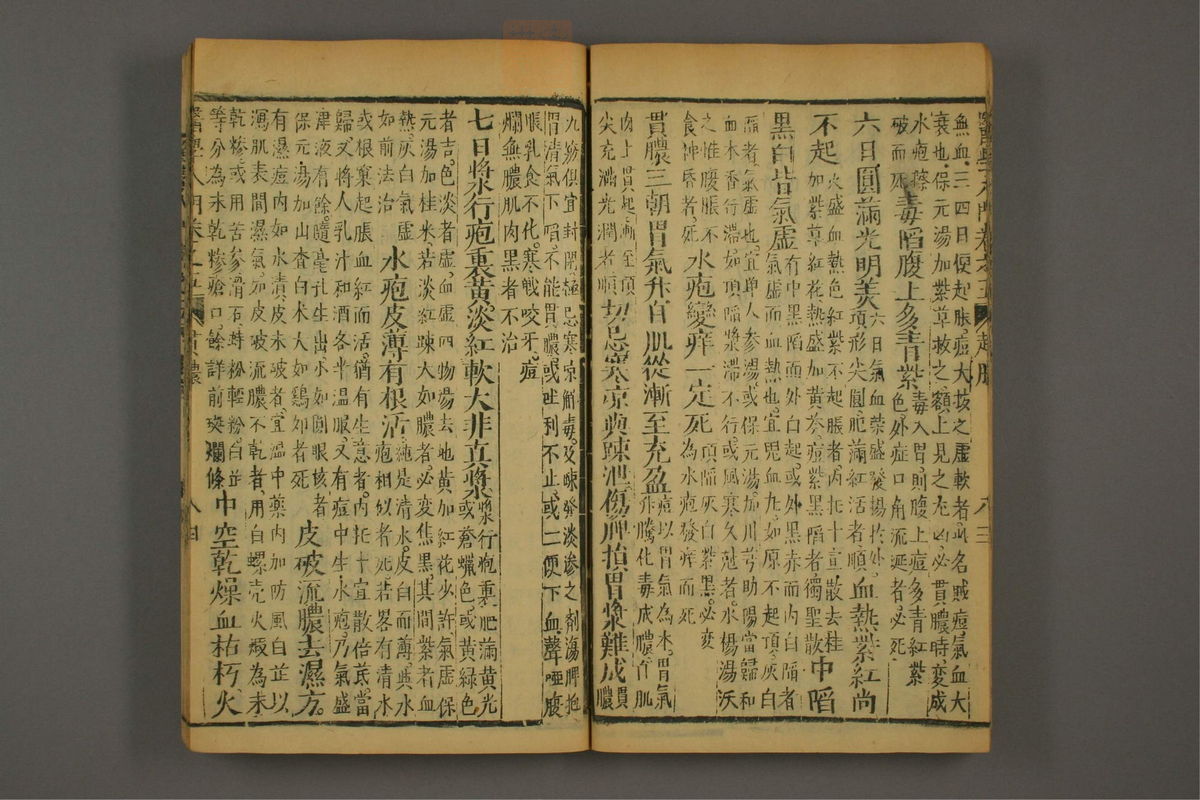 無血三四日便起脹痘大按之虛軟者亦名賊痘氣血大
衰也保元湯加紫草救之額上見之尤凶必貫膿時變成
水疱擦
破而死毒陷腹上多青紫毒入胃則腹上痘多青紅紫色外症口角流涎者必死
六日圓滿光明美頂形尖圓肥滿紅活者順血熱紫紅尚
不起火盛血熱色紅紫不起脹者內托十宣散去桂如紫草紅花熱盛加黃芩痘紫黑陷者獨聖散中陷
黑白皆氣虛有中黑陷而外白起或外黑赤而內白陷者氣虛而血熱也宜四血九如原不起頂灰白
陷者氣虛也宜單人參湯或保元湯加川芎助陽當歸和
血木香行滯如頂陷漿滯不行或風寒久剋者水楊湯沃
之惟腹脹不
食神昏者死水疱變痒一定死頂陷灰白紫黑必變為水疱發痒而死
貫膿三朝胃氣升百肌從漸至充盈痘以胃氣為本胃氣升騰化毒成膿自肌
肉上貫起漸至頂
尖充滿光潤者順切忌寒凉與疎泄傷脾損胃漿難成貫膿
九竅俱宜封閉極忌寒凉解毒及疎發淡滲之劑蕩脾
胃清氣下陷不能貫膿或吐利不止或二便下血聲啞腹
脹乳食不化寒戰咬牙痘
爛無膿肌肉黑者不治
七日將漿行疱裹黃淡紅軟大非真漿漿行疱裹肥滿黃光或蒼蠟色或黃綠色
者吉色淡者虛血虛四物湯去地黃加紅花少許氣虛保
元湯加桂米若淡紅疎大如膿者必變焦黑其間紫者血
熱灰白氣虛
如前法治水疱皮薄有根活純是清水皮白而薄與水疱相似者死若畧有清水
或根窠起脹血紅而活猶有生意者內托十宣散倍芪當
歸又將人乳汁和酒各半溫服又有痘中生水疱乃氣盛
津液有餘隨毫孔生出水如圓眼核者
保元湯加山查白朮大如雞卵者死皮破流膿去濕方
有濕痘內如水漬皮未破者宜溫中藥內加防風白芷以
瀉肌表間濕氣如皮破流膿不乾者用白螺壳火煅為末
乾糝或用苦參滑石蚌粉輕粉白芷
等分為末乾糝瘡口餘詳前斑爛條中空乾燥血枯朽火